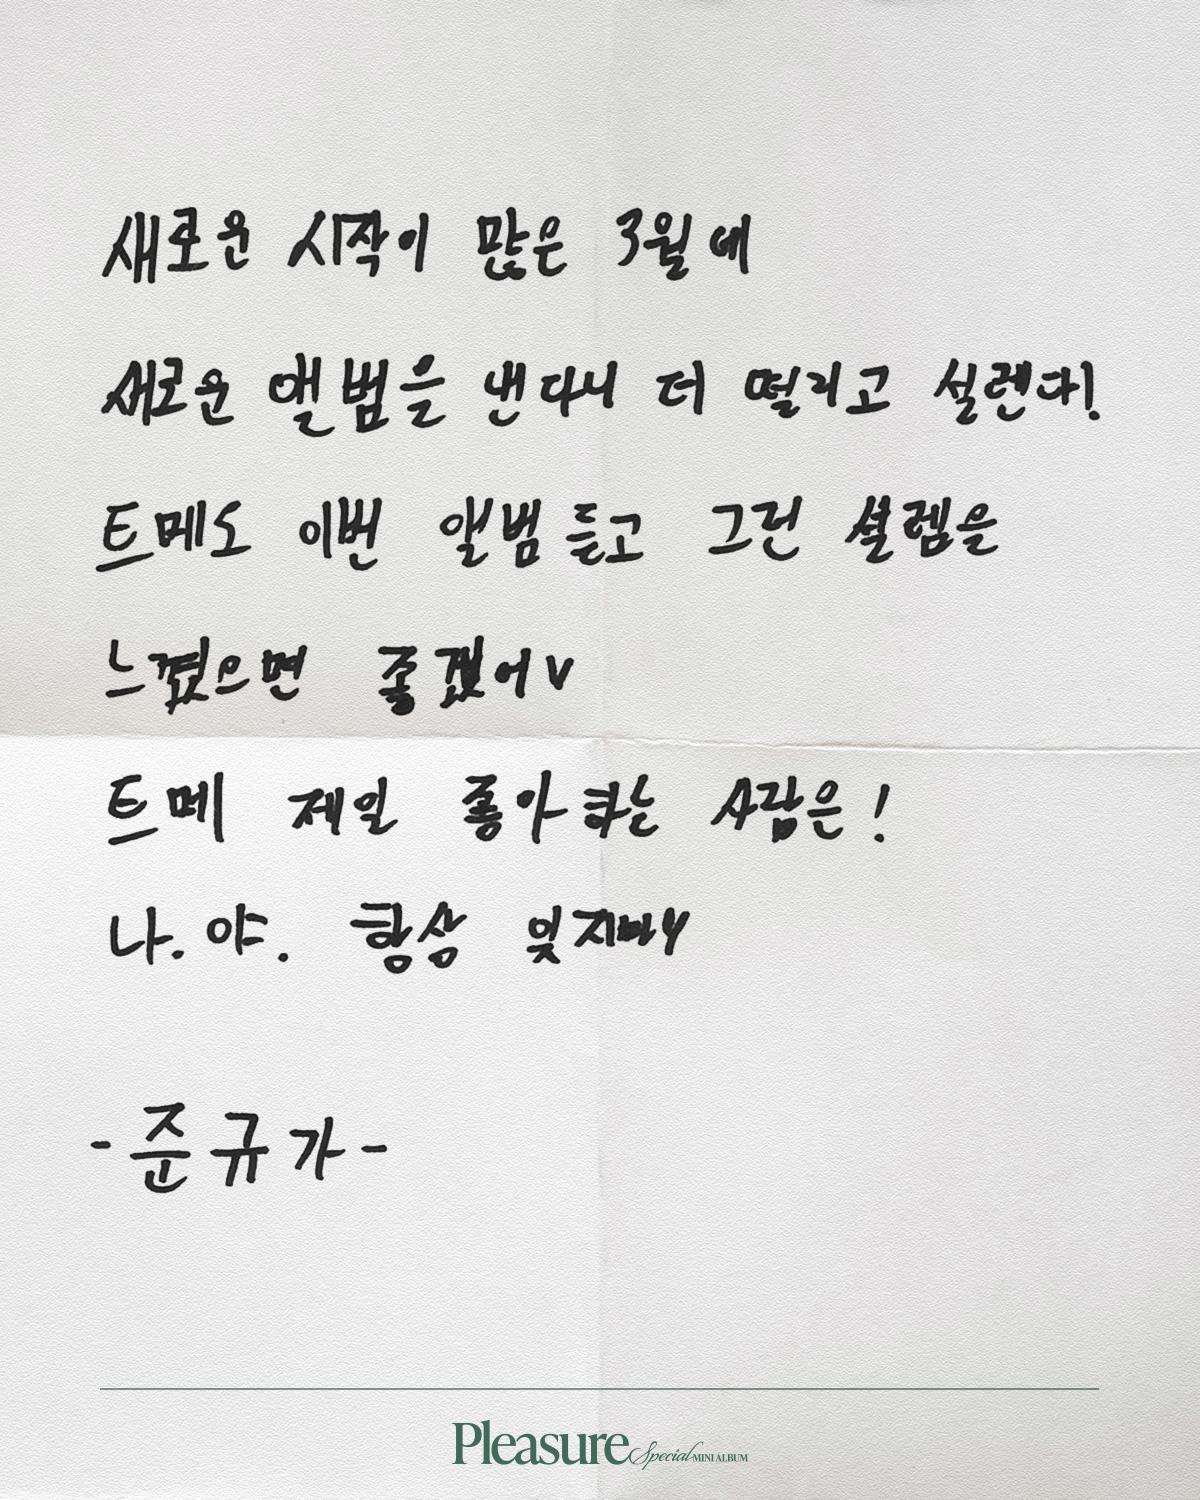 새로운 시작이 많은 3월에
새로운 앨범을 낸다니 더 떨리고 설렌다!
트메도 이번 앨범 듣고 그런 설렘을
느꼈으면 좋겠어 v
트메 제일 좋아하는 사람은!
나. 야. 항상 잊지마
- 준규가 -
Pleasure Special MINI ALBUM